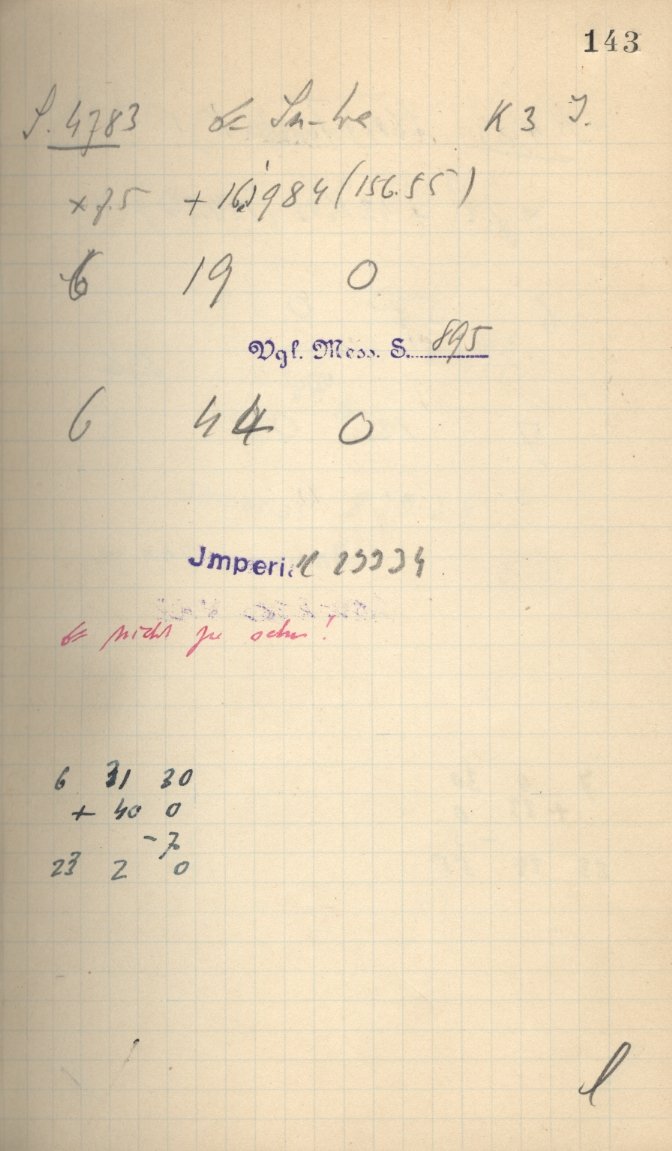 143
S. 4783 K 3 J.
×7.5 + 16,984 (156.55)
6 19 0
Vgl. Mess. S. 895
6 44 0
Jmperial 23234
nicht zu sehn!
6 31 30
+ 40 0
-7
23 2 0